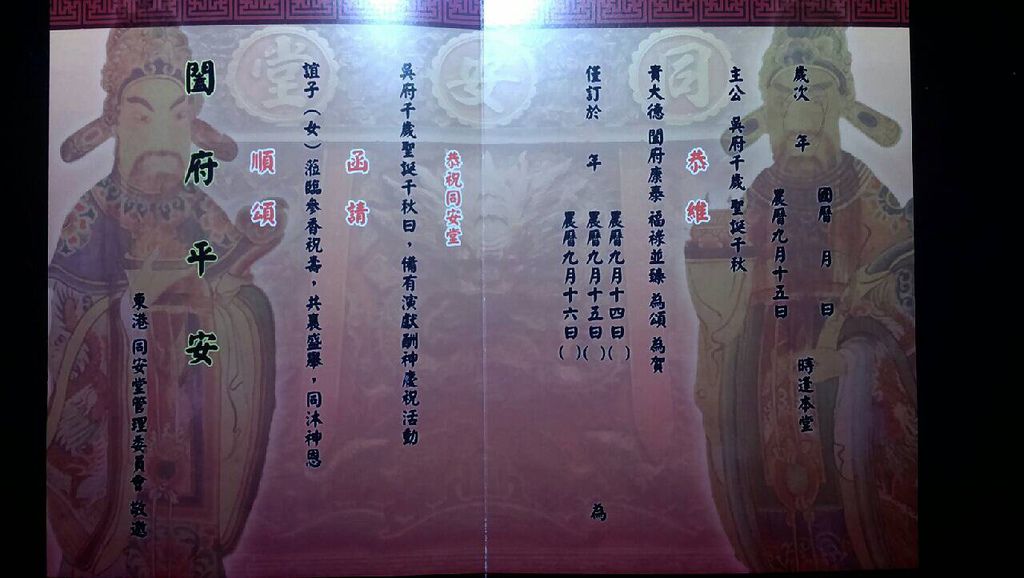 同安堂
歲次 年 國曆 月 日 時逢本堂
農曆九月十五日
主公 吳府千歲 聖誕千秋
恭維
貴大德 閤府康泰 福祿並臻 為頌 為賀
僅訂於 年 農曆九月十四日( )
農曆九月十五日( )
農曆九月十六日( ) 為
恭祝同安堂
吳府千歲聖誕千秋日，備有演獻酬神慶祝活動
函請
誼子（女）蒞臨參香祝壽，共襄盛舉，同沐神恩
順頌
閤府平安
東港同安堂管理委員會 敬邀